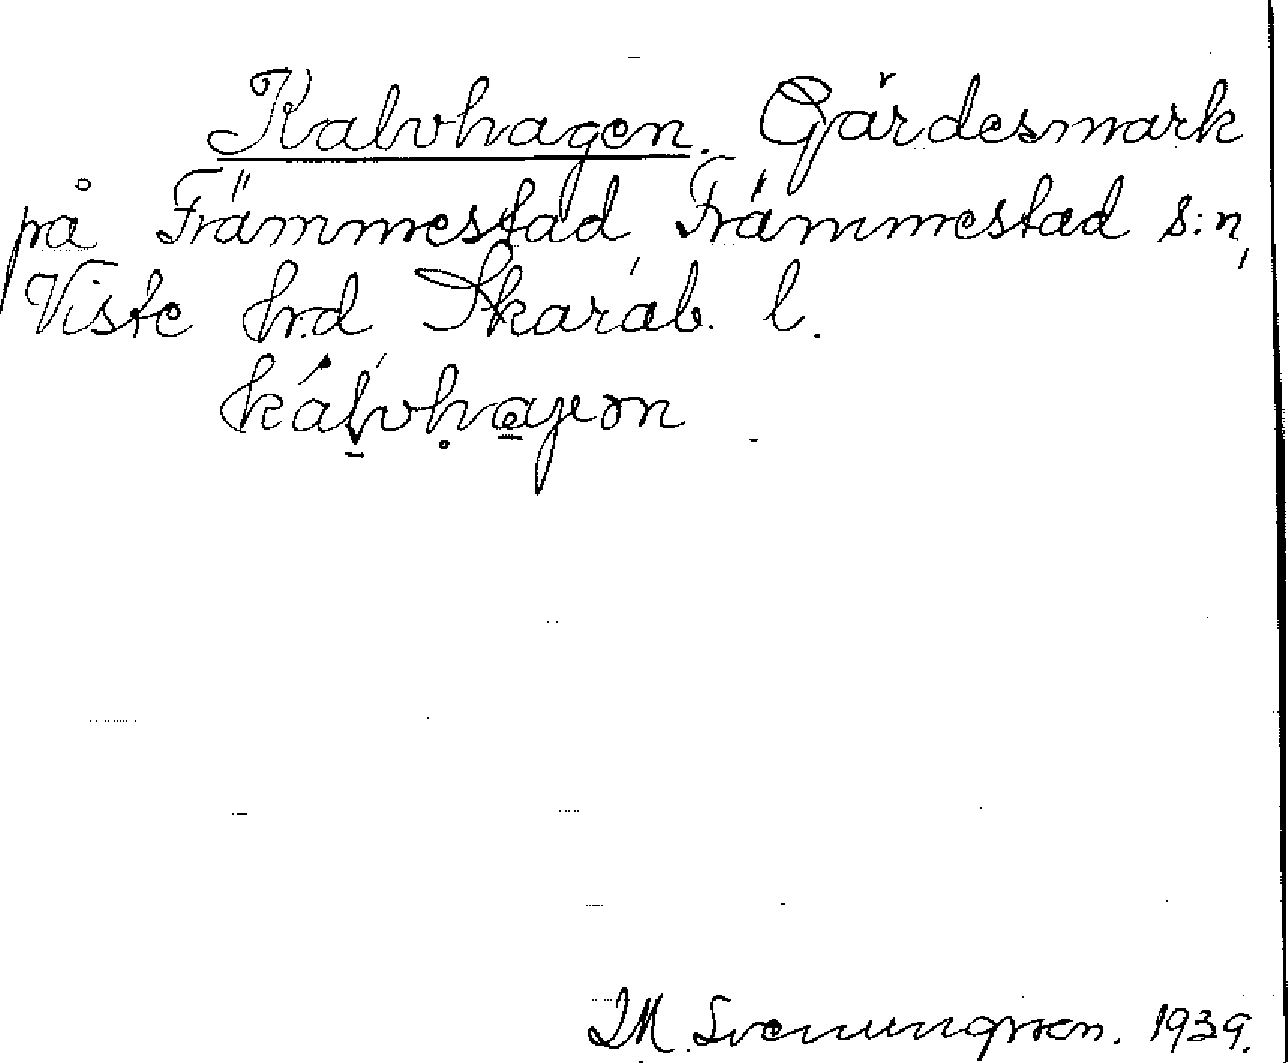 Kalvhagen. Gärdesmark
på Främmestad, Främmestad s:n,
Viste hrd Skarab. l.
M. Svenungsson. 1939.